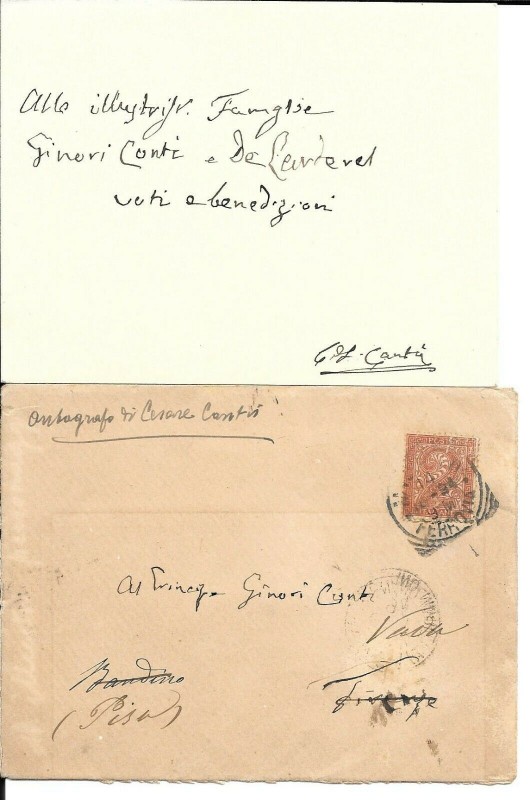 Alle illustriss. Famiglie
Ginori Conti e De Larderel
voti e benedizioni
C. Cantù
Autografo di Cesare Cantù
POSTE
94
FERROVIA
Al Principe Ginori Conti
Bandino
Firenze
(Pisa)